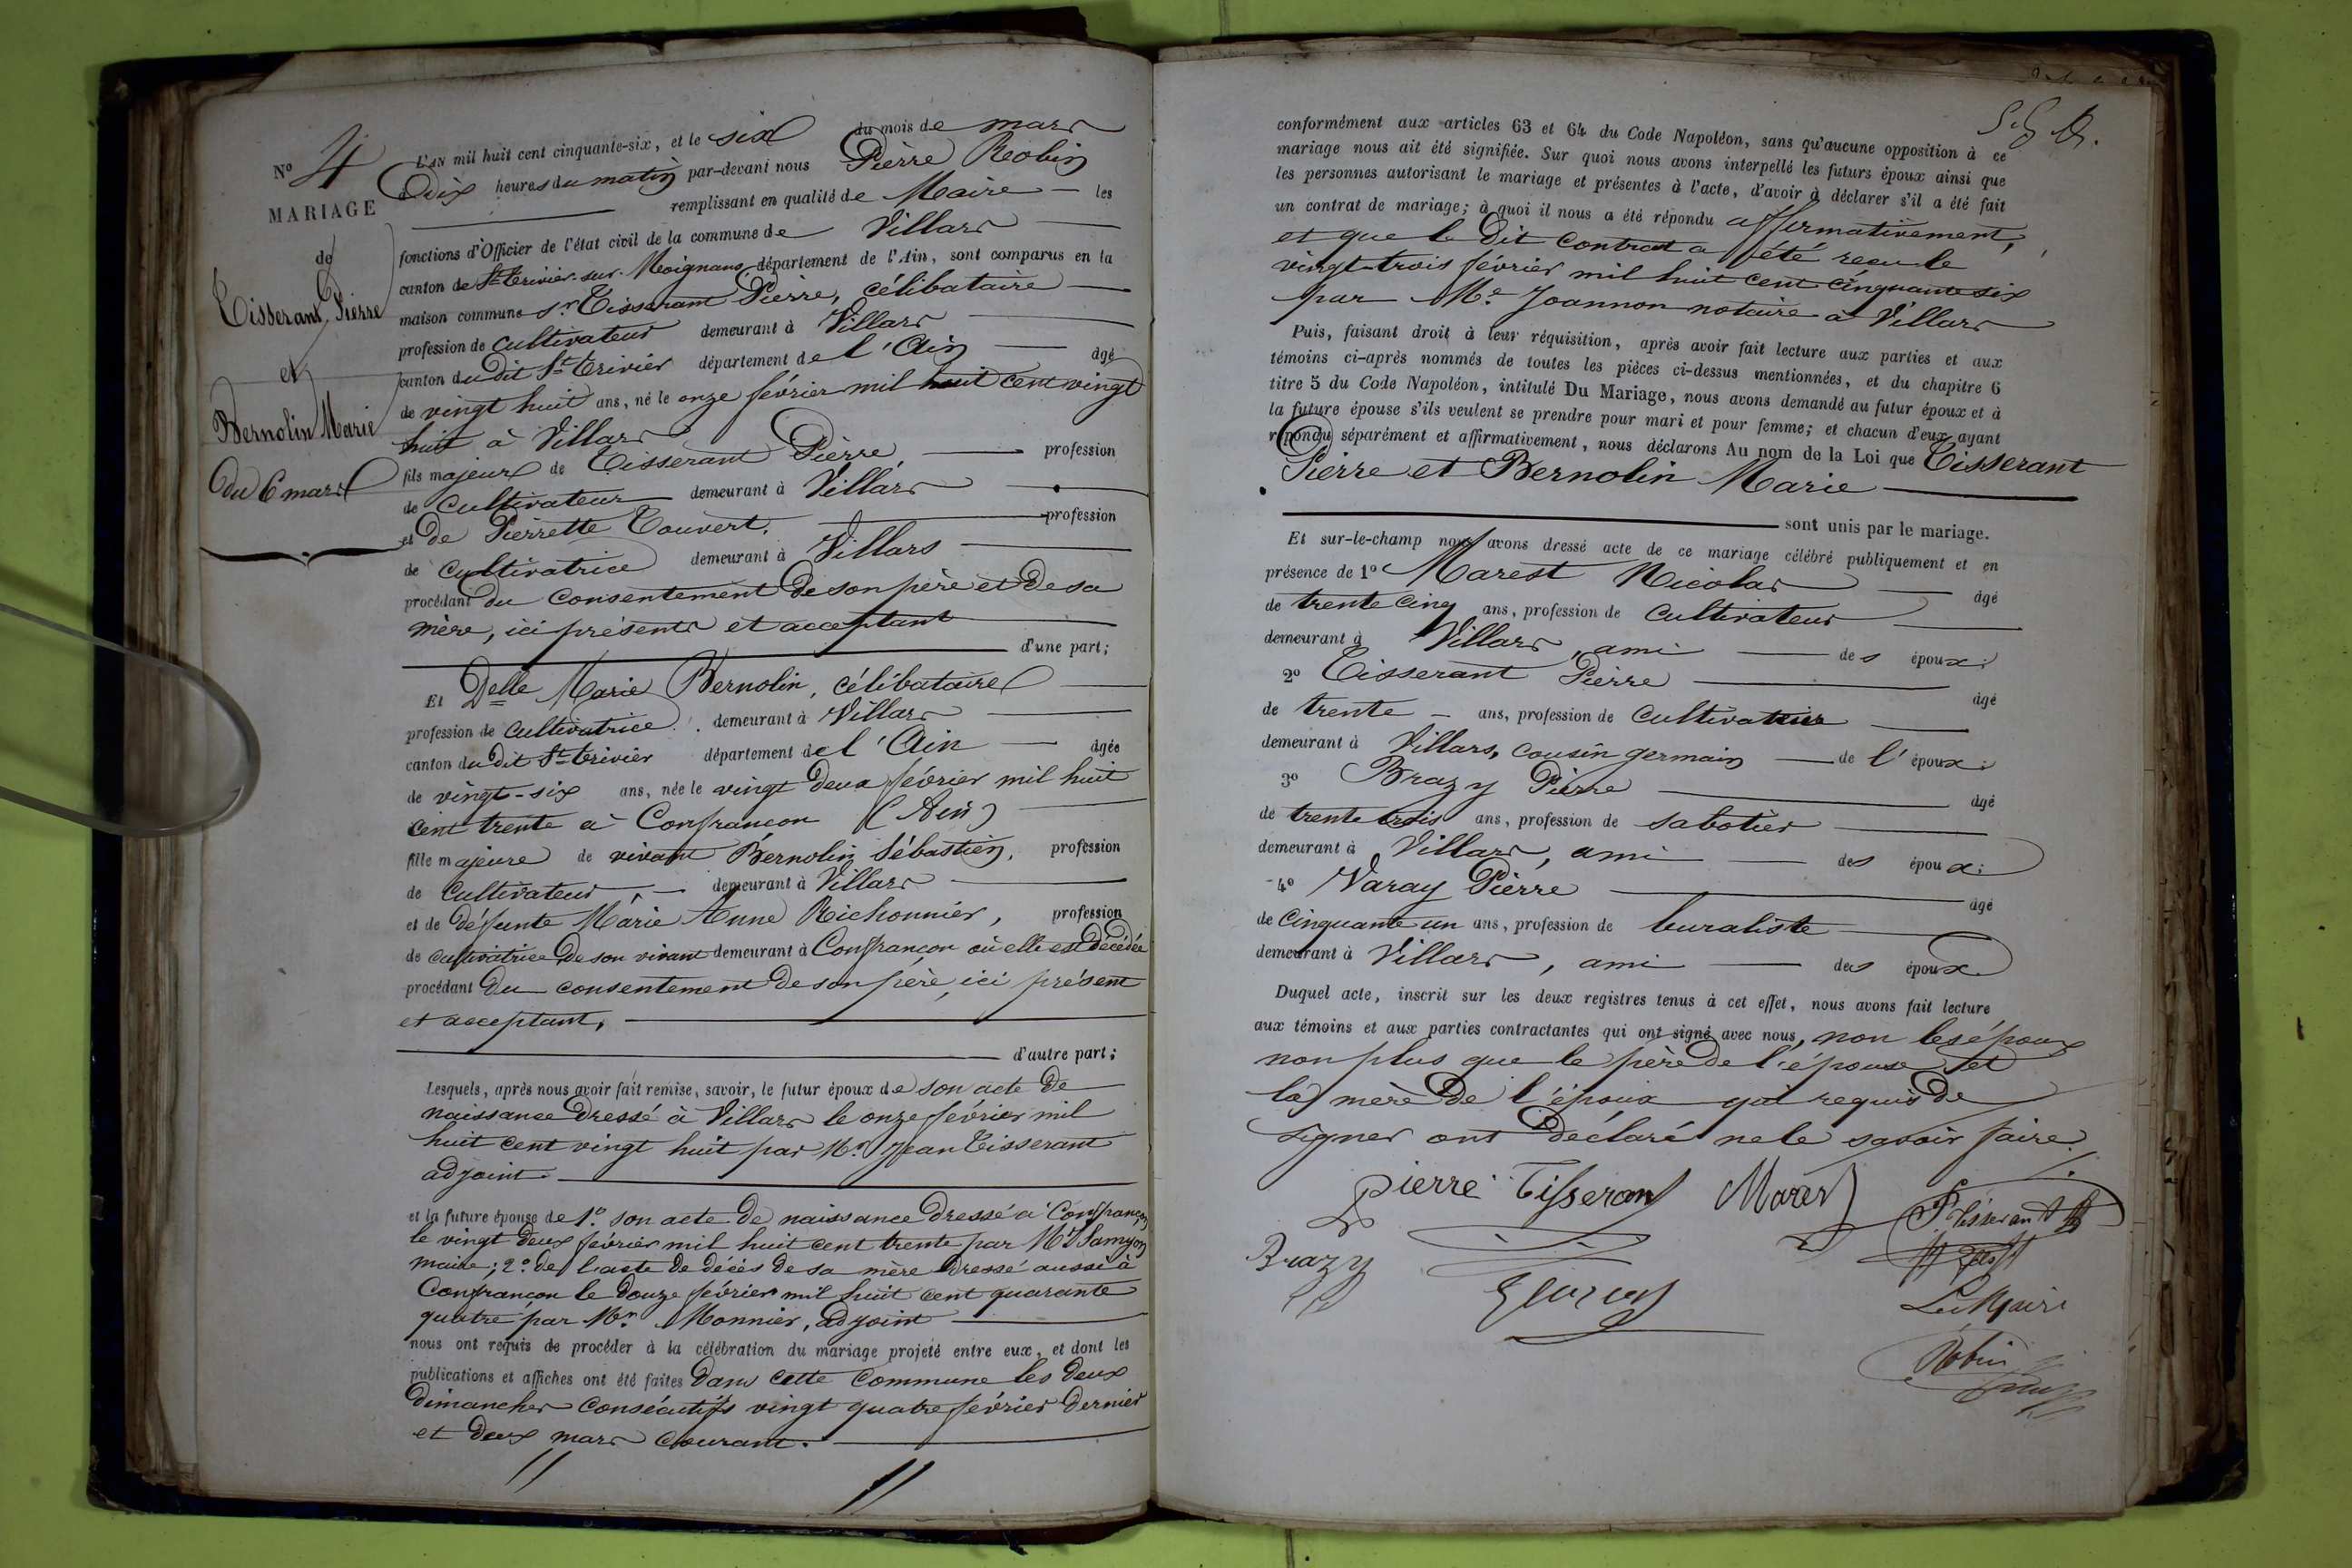 N.º 4
MARIAGE
de
Tisserant Pierre
et
Bernolin Marie
du 6 mars
L'an mil huit cent cinquante-six, et le six du mois de mars
à Dix heures du matin par-devant nous Pierre Robin
remplissant en qualité de Maire les
fonctions d'Officier de l'état civil de la commune de Villars
canton de St Trivier-sur-Moignans, département de l'Ain, sont comparus en la
maison commune sr Tisserant Pierre, célibataire
profession de cultivateur demeurant à Villars
canton du dit St Trivier département de l'Ain âgé
de vingt huit ans, né le onze février mil huit cent vingt
huit à Villars
fils majeur de Tisserant Pierre, profession
de cultivateur demeurant à Villars
et de Pierrette Touvert, profession
de cultivatrice demeurant à Villars
procédant du consentement de son père et de sa
mère, ici présents et acceptant
d'une part;
Et Delle Marie Bernolin, célibataire
profession de cultivatrice demeurant à Villars
canton du dit St Trivier département de l'Ain âgée
de vingt-six ans, née le vingt deux février mil huit
cent trente à Confrançon (Ain)
fille majeure de vivant Bernolin Sébastien, profession
de cultivateur, demeurant à Villars
et de défunte Marie Anne Richonnier, profession
de cultivatrice de son vivant demeurant à Confrançon où elle est décédée
procédant du consentement de son père, ici présent
et acceptant,
d'autre part;
Lesquels, après nous avoir fait remise, savoir, le futur époux de son acte de
naissance dressé à Villars le onze février mil
huit cent vingt huit par Mr Jean Tisserant
adjoint.
et la future épouse de 1º son acte de naissance dressé à Confrançon
le vingt deux février mil huit cent trente par Mr Samyon
maire; 2º de l'acte de décès de sa mère dressé aussi à
Confrançon le douze février mil huit cent quarante
quatre par Mr Monnier, adjoint
nous ont requis de procéder à la célébration du mariage projeté entre eux, et dont les
publications et affiches ont été faites dans cette commune les deux
dimanches consécutifs vingt quatre février dernier
et deux mars courant.
conformément aux articles 63 et 64 du Code Napoléon, sans qu'aucune opposition à ce
mariage nous ait été signifiée. Sur quoi nous avons interpellé les futurs époux ainsi que
les personnes autorisant le mariage et présentes à l'acte, d'avoir à déclarer s'il a été fait
un contrat de mariage; à quoi il nous a été répondu affirmativement,
et que le dit contrat a été reçu le
vingt-trois février mil huit cent cinquante six
par Me Joannon notaire à Villars
Puis, faisant droit à leur réquisition, après avoir fait lecture aux parties et aux
témoins ci-après nommés de toutes les pièces ci-dessus mentionnées, et du chapitre 6
titre 5 du Code Napoléon, intitulé Du Mariage, nous avons demandé au futur époux et à
la future épouse s'ils veulent se prendre pour mari et pour femme; et chacun d'eux ayant
répondu séparément et affirmativement, nous déclarons Au nom de la Loi que Tisserant
Pierre et Bernolin Marie
sont unis par le mariage.
Et sur-le-champ nous avons dressé acte de ce mariage célébré publiquement et en
présence de 1º Marest Nicolas âgé
de trente cinq ans, profession de cultivateur
demeurant à Villars, ami des époux;
2º Tisserant Pierre âgé
de trente ans, profession de cultivateur
demeurant à Villars, cousin germain de l'époux;
3º Brazy Pierre âgé
de trente trois ans, profession de sabotier
demeurant à Villars, ami des époux;
4º Varay Pierre âgé
de cinquante un ans, profession de buraliste
demeurant à Villars, ami des époux
Duquel acte, inscrit sur les deux registres tenus à cet effet, nous avons fait lecture
aux témoins et aux parties contractantes qui ont signé avec nous, non les époux
non plus que le père de l'épouse et
la mère de l'époux qui requis de
signer ont déclaré ne le savoir faire.
pierre Tisserant Marest P Tisserant
Brazy
Le Maire
Robin